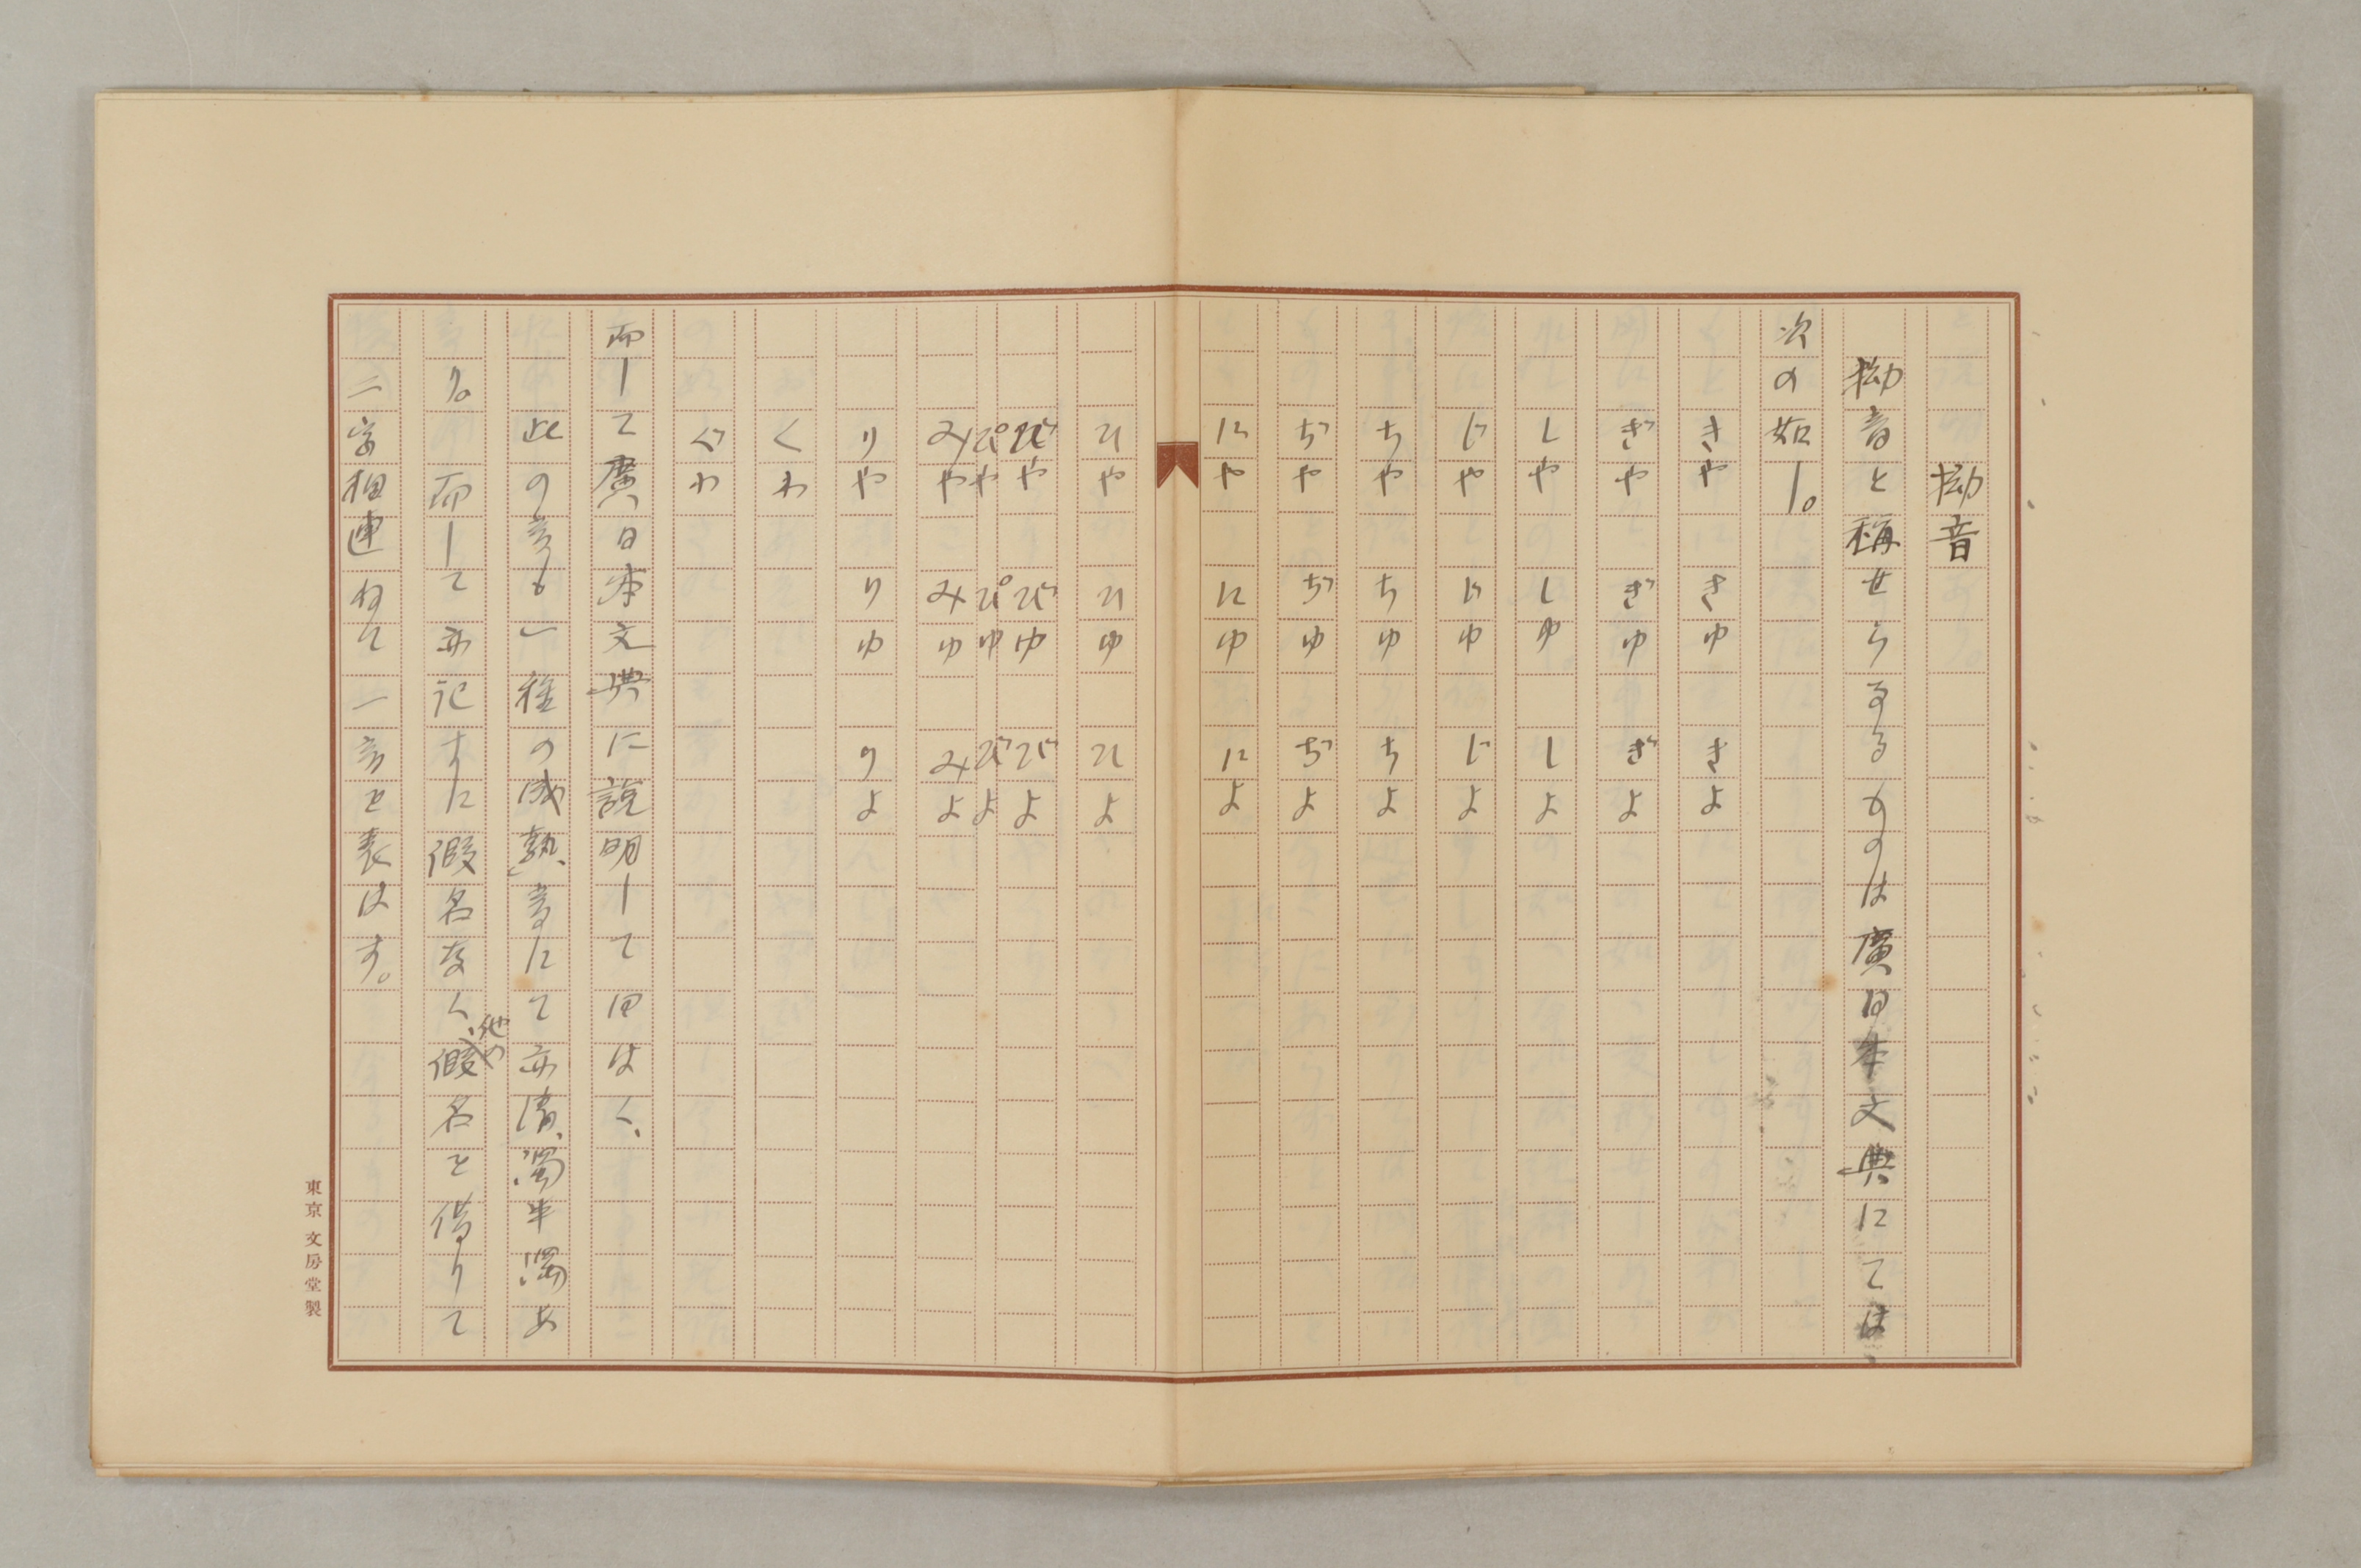 拗音
拗音と稱せらるるものは廣日本文典にては、
次の如し。
きや きゆ きよ
ぎや ぎゆ ぎよ
しや しゆ しよ
じや じゆ じよ
ちや ちゆ ちよ
ぢや ぢゆ ぢよ
にや にゆ によ
ひや ひゆ ひよ
びや びゆ びよ
ぴや ぴゆ びよ
みや みゆ みよ
りや りゆ りよ
くわ
ぐわ
而して廣日本文典に説明して曰はく、
此の音も一種の成熟音にて亦清、濁、半濁あ
り。而して亦記すに假名なく、他の假名を借りて
二字相連ねて一音を表はす。
東京 文房堂製